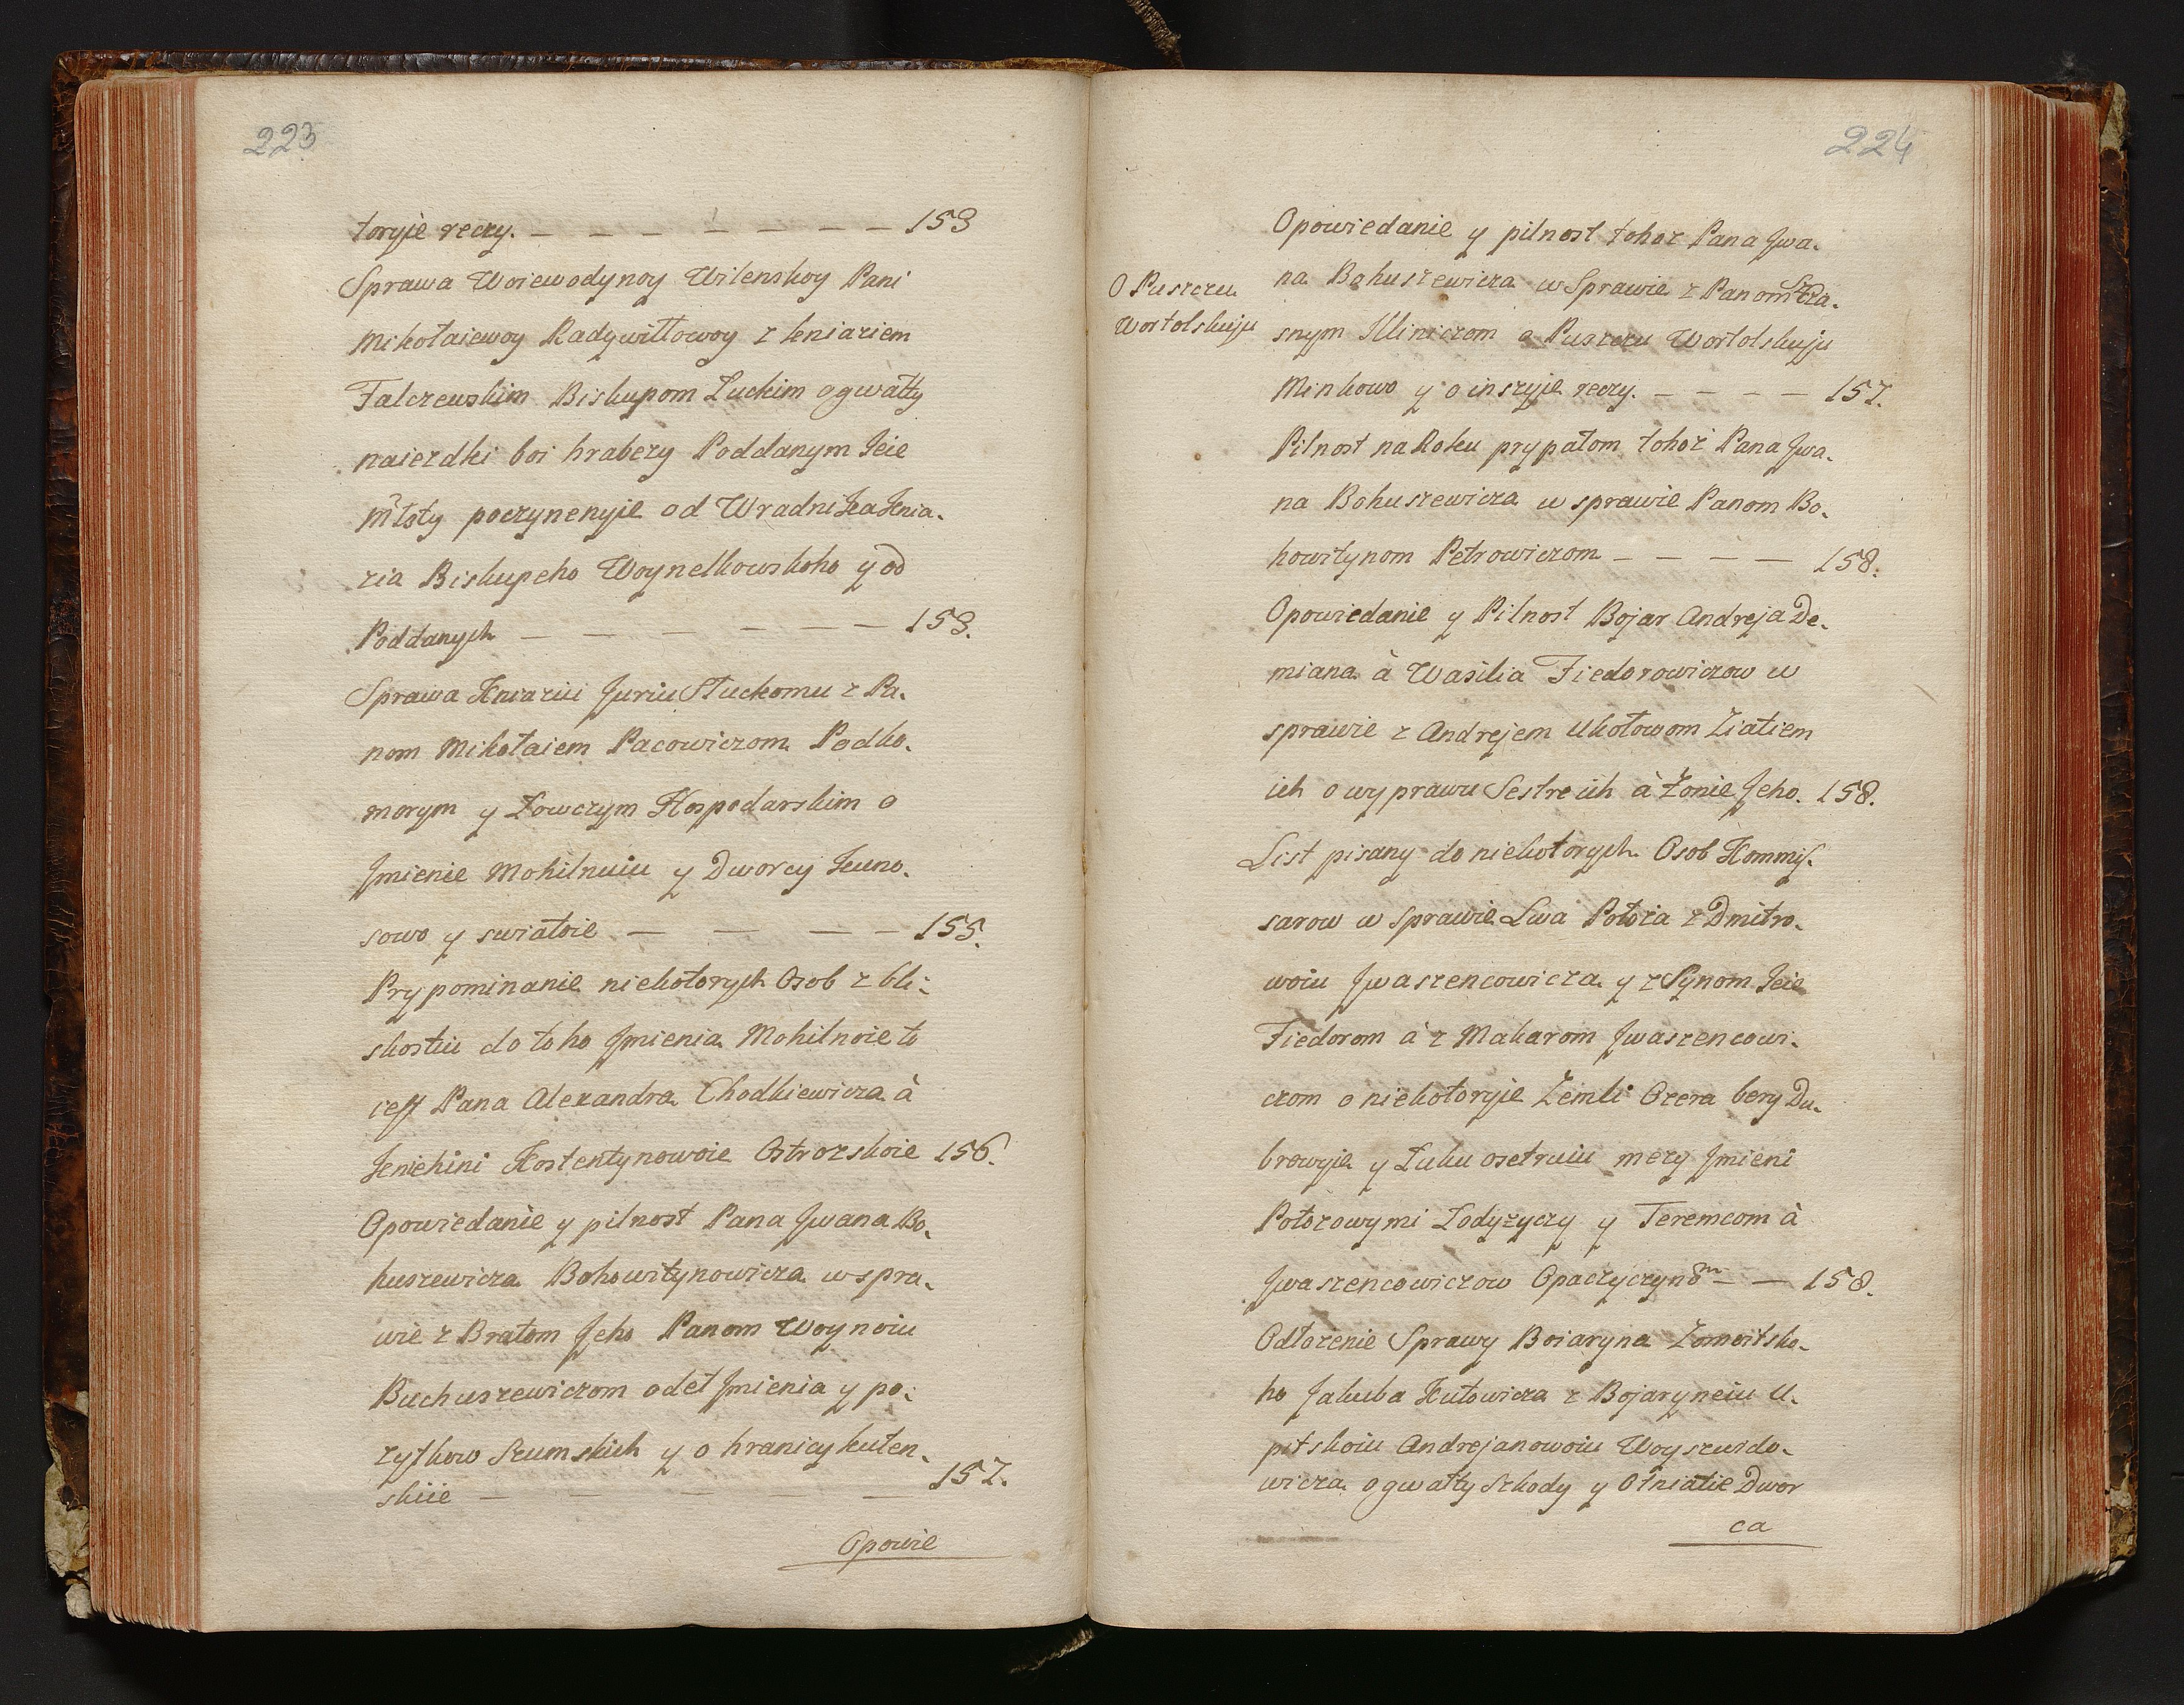 223
toryje reczy. — — — — — — — 153
Sprawa Woiewodynoy Wilenskoy Pani
Mikołaiewoy Radywiłłowoy z kniaziem
Falczewskim Biskupom Łuckim o gwałty
naiezdki boi hrabezy Poddanym Jeie
Młsty poczynenyje od Wradnika Knia-
zia Biskupeho Woynelkowskoho y od
Poddanych — — — — — — — 153.
Sprawa Kniaziu Juriu Słuckomu z Pa-
nom Mikołaiem Pacowiczom Podko-
morym y Łowczym Hospodarskim o
Jmienie Mohilnuiu y Dworcy Kuno-
sowo y swiatoie — — — — 155.
Prypominanie niekotorych Osob z bli-
skostiu do toho Jmienia Mohilnoie to
iest Pana Alexandra Chodkiewicza à
Kniehini Kostentynowoie Ostrozskoie 156.
Opowiedanie y pilnost Pana Jwana Bo-
huszewicza Bohowitynowicza w spra-
wie z Bratom Jeho Panom Woynoiu
Buchuszewiczom o deł Jmienia y po-
zytkow Szumskich y o hranicy kuten-
skiie — — — — — 157.
Opowie
224
Opowiedanie y pilnost tohoż Pana Jwa-
na Bohuszewicza w Sprawie z Panom Stra-
snym Kliniczom o Puszczu Wortolskuju
Minkowo y o inszyje reczy. — — — — 157.
O Puszczu
Wortolskuju
Pilnost na Roku prypałom tohoż Pana Jwa-
na Bohuszewicza w sprawie Panom Bo-
howitynom Petrowiczom — — — — 158.
Opowiedanie y Pilnost Bojar Andreja De-
miana à Wasilia Fiedorowiczow w
sprawie z Andrejem Ukołowom Ziatiem
ich o wyprawu Sestre ich à Żonie Jeho. 158.
List pisany do niekotorych Osob Kommis-
sarow w sprawie Lwa Połoza z Dmitro-
woiu Jwaszencowicza y z Synom Jeie
Fiedorom à z Makarom Jwaszencowi-
czom o niekotoryje Zemli Ozera bery Du-
browyje y Łuku osetruiu mezy Jmieni
Połozowymi Łodyżyczy y Teremcom à
Jwaszencowiczow Opaczyczynom — — 158.
Odłozenie Sprawy Boiaryna Żomoitsko-
ho Jakuba Kutowicza z Bojaryneiu U-
pitskoiu Andrejanowoiu Woyszwido-
wicza o gwałty Szkody y Otniatie Dwor
ca